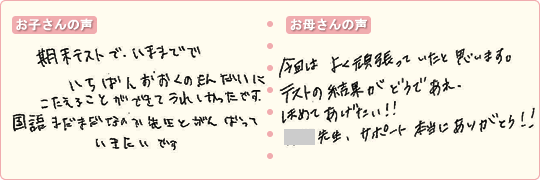 お子さんの声
期末テストで、いままでで
いちばんおおくのもんだいに
こたえることができてうれしかったです。
国語まだまだなので先生とがんばって
いきたいです
お母さんの声
今回はよく頑張っていたと思います。
テストの結果がどうであれ、
ほめてあげたい!!
先生、サポート本当にありがとう!!